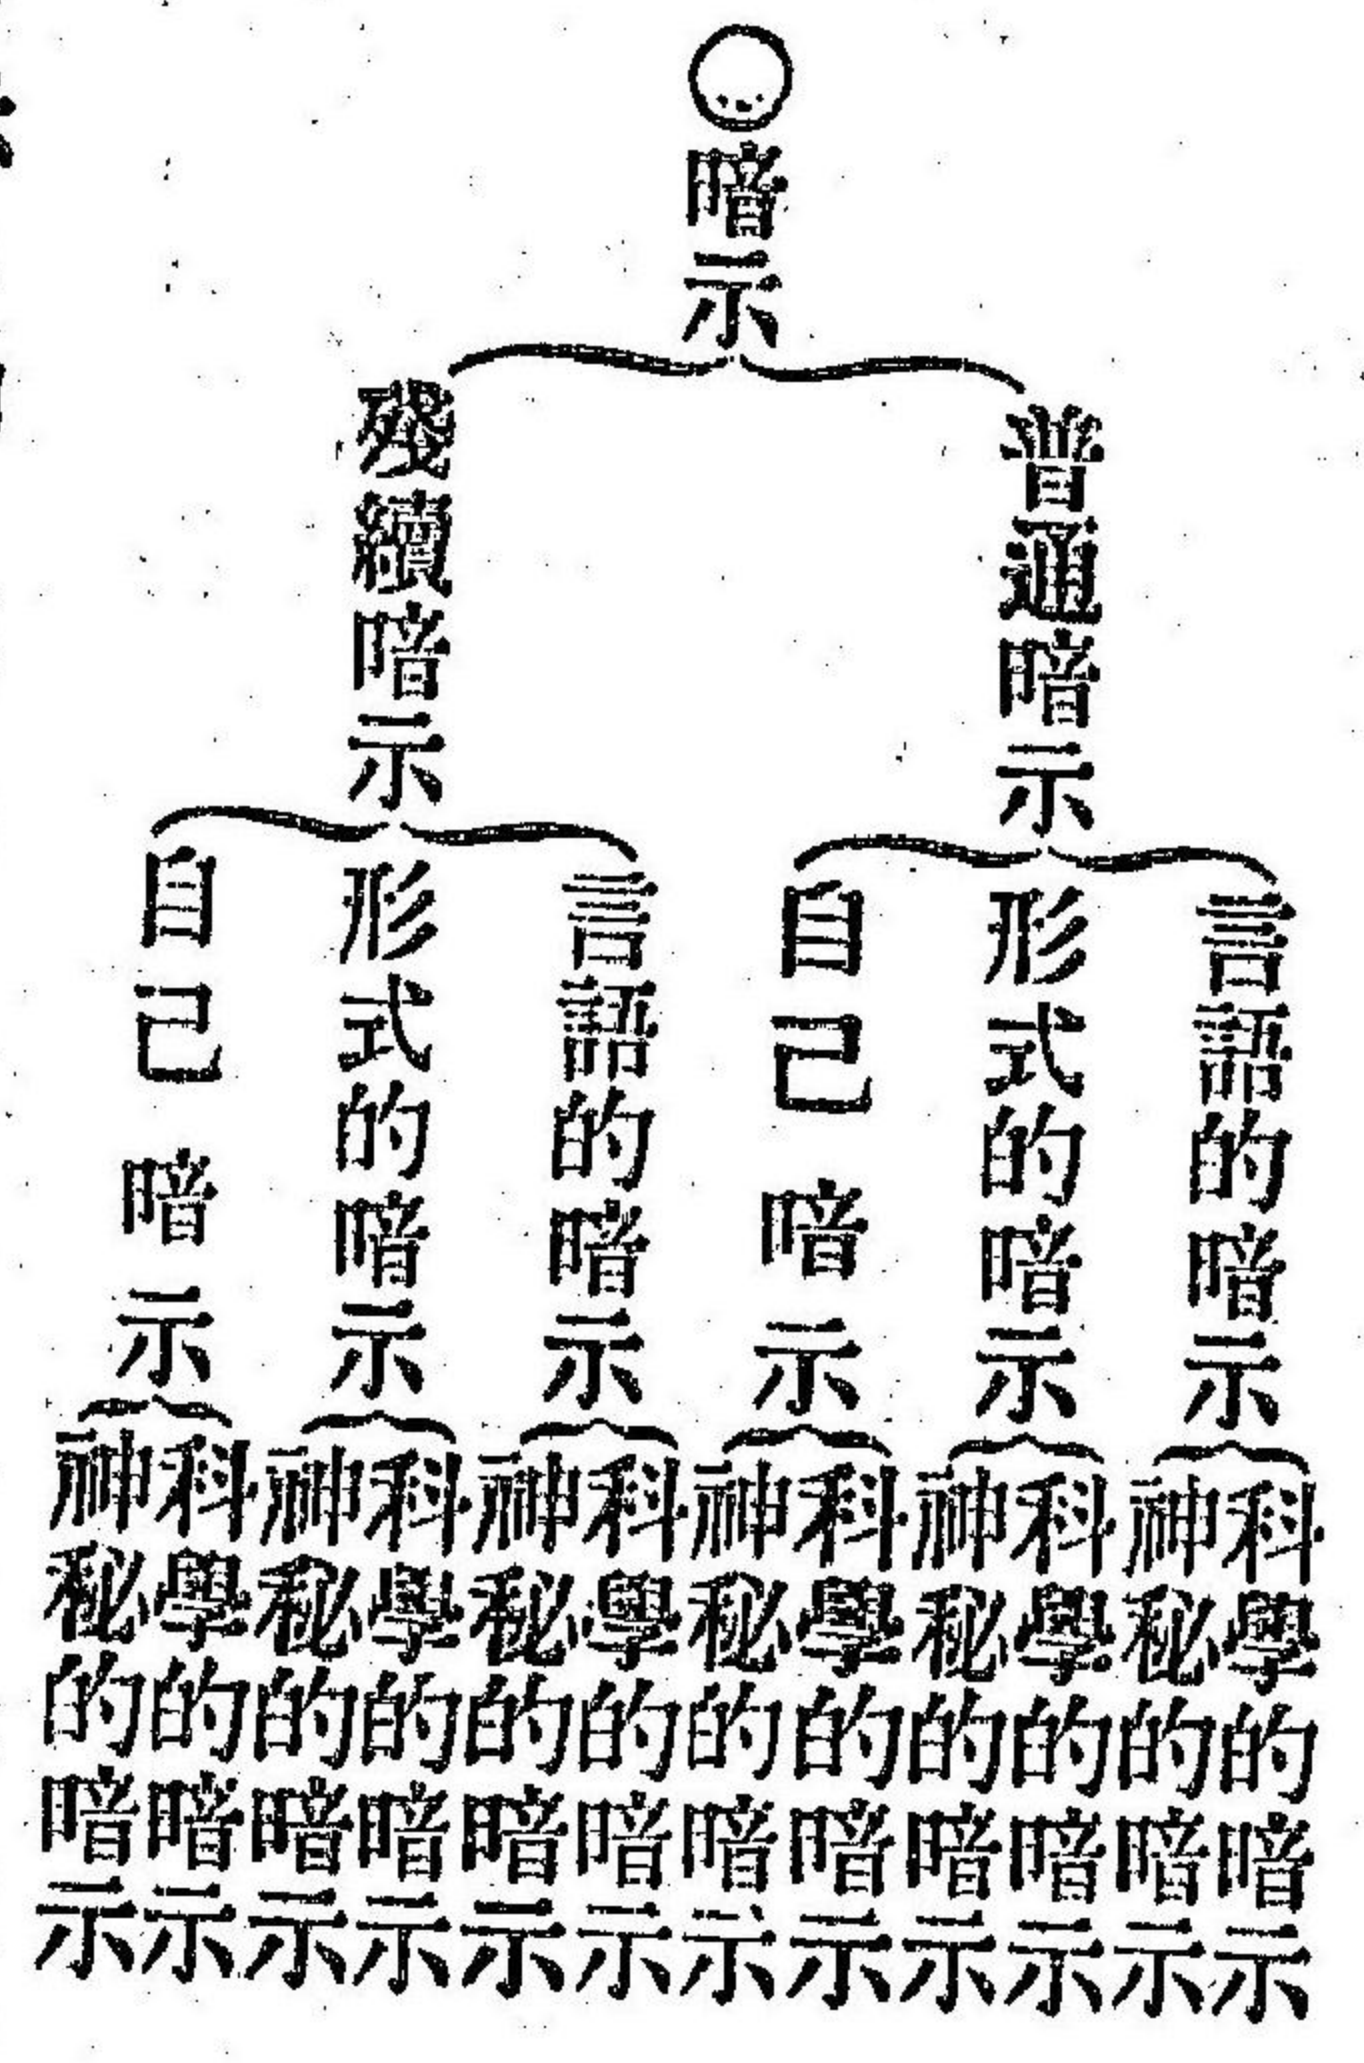 ○暗示
普通暗示
言語的暗示
科學的暗示
神秘的暗示
形式的暗示
科學的暗示
神秘的暗示
自己暗示
科學的暗示
神秘的暗示
殘續暗示
言語的暗示
科學的暗示
神秘的暗示
形式的暗示
科學的暗示
神秘的暗示
自己暗示
科學的暗示
神秘的暗示